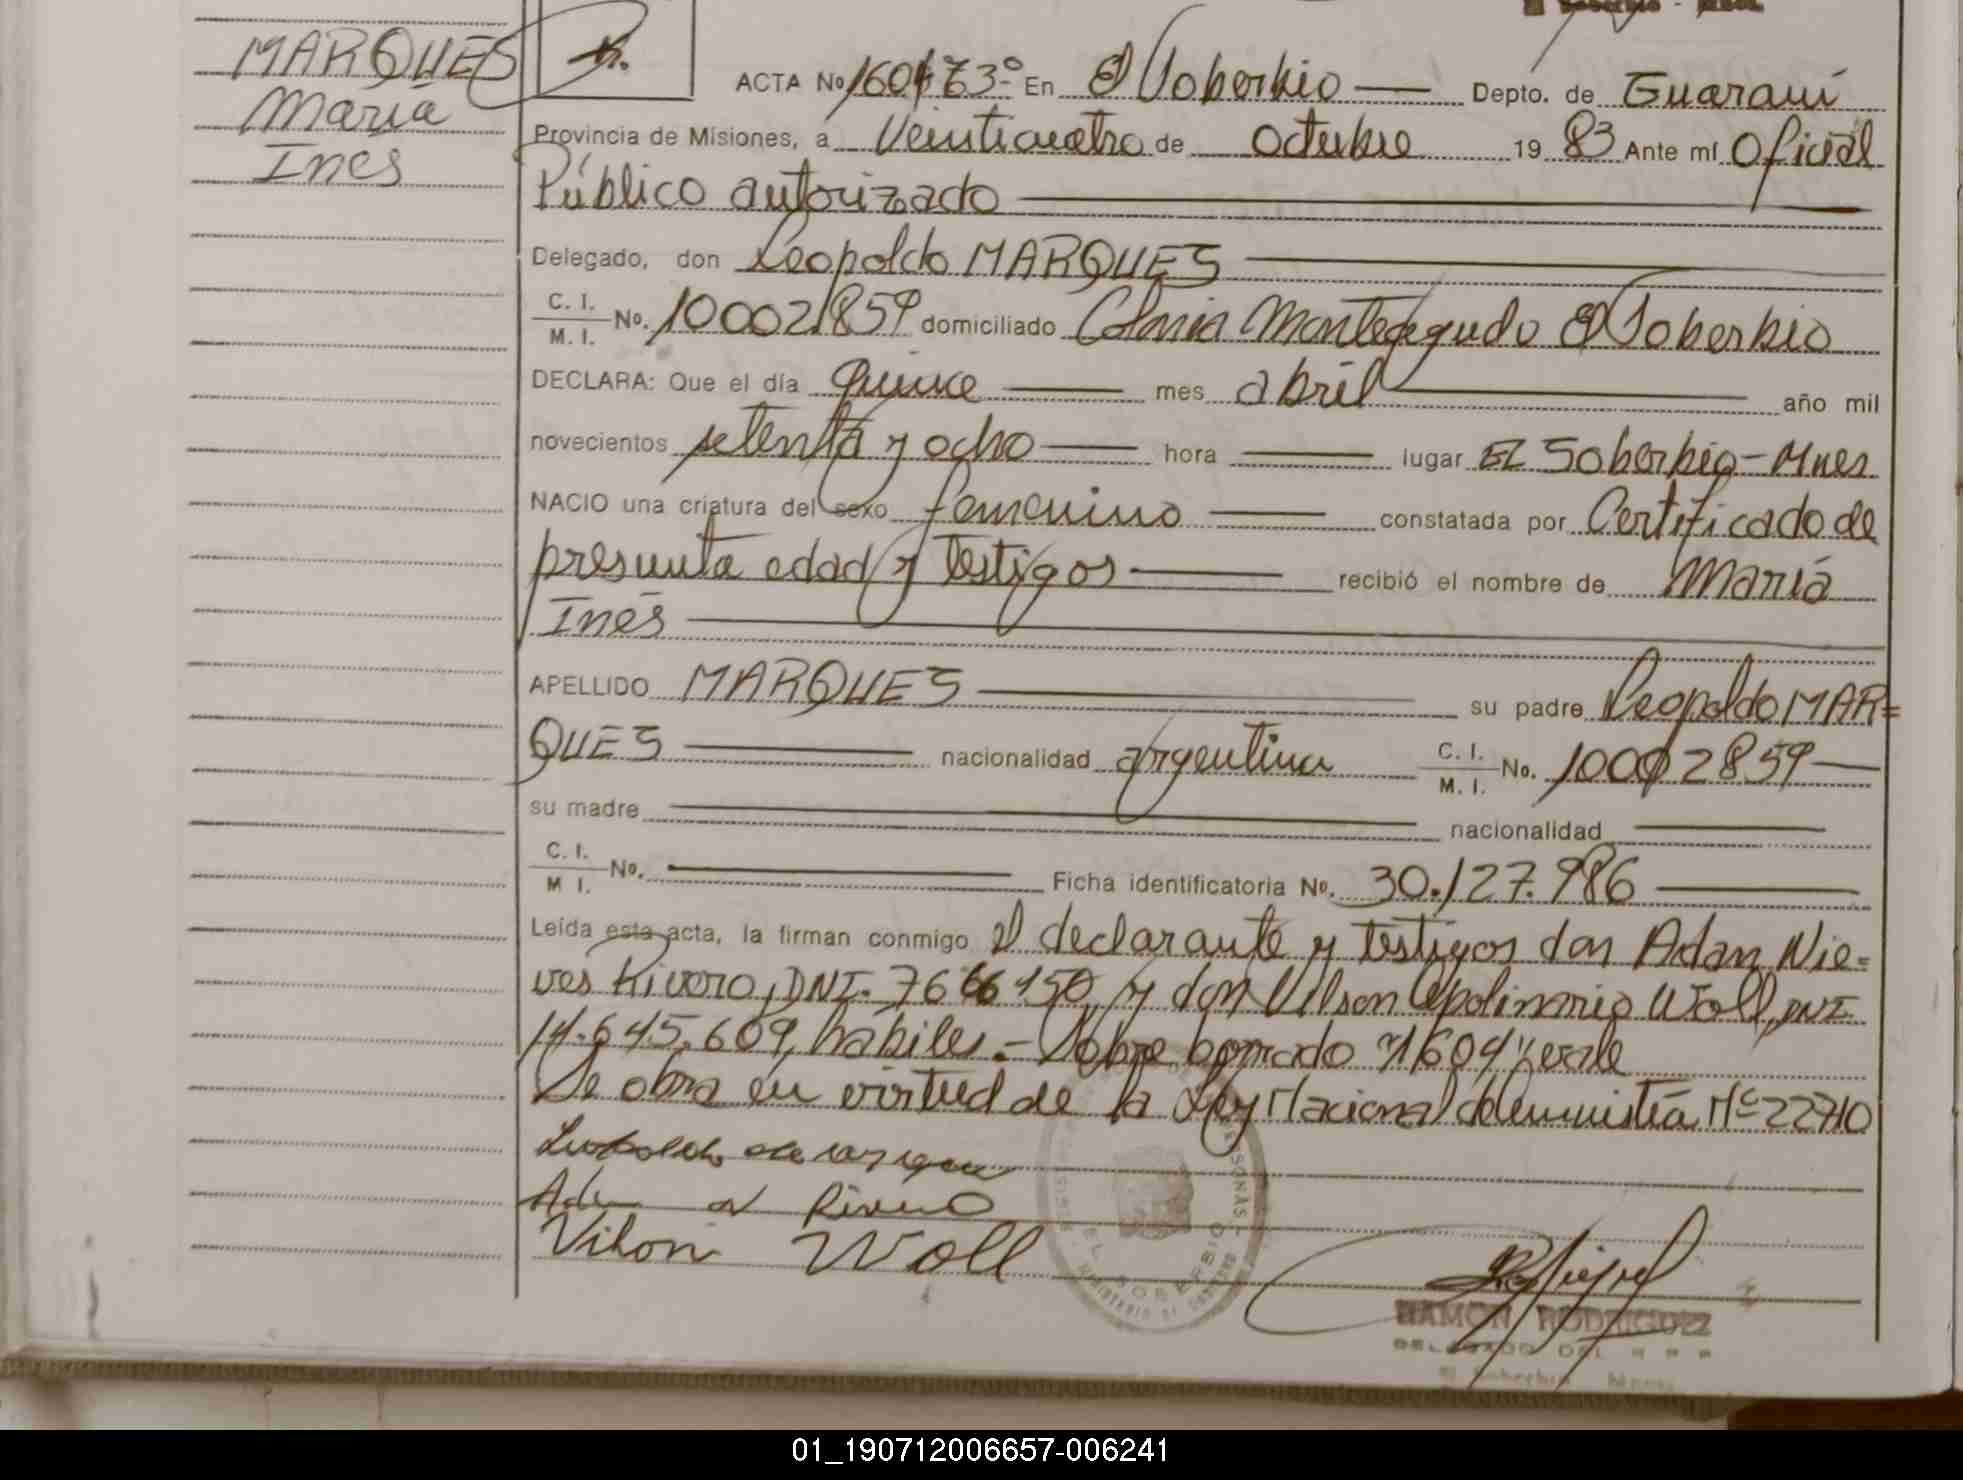 MARQUES
María
Inés
ACTA No 1604 T3º En El Soberbio Depto. de Guaraní
Provincia de Misiones, a Veinticuatro de Octubre 19 83 Ante mí Oficial
Público autorizado
Delegado, don Leopoldo MARQUES
C. I.
M. I. No. 10002859 domiciliado Colonia Monteagudo El Soberbio
DECLARA: Que el día Quince mes abril año mil
novecientos setenta y ocho hora lugar EL Soberbio-Mnes
NACIO una criatura del sexo femenino constatada por Certificado de
presunta edad y testigos recibió el nombre de María
Inés
APELLIDO MARQUES su padre Leopoldo MAR=
QUES nacionalidad argentina C. I.
M. I. No. 10002859
su madre nacionalidad
C. I.
M I. No. Ficha identificatoria No. 30.127.986
Leída esta acta, la firman conmigo el declarante y testigos don Adan Nie=
ves Rivero, DNI. 7646150, y don Vilson Apolinario Woll, DNI
14.645.609, habiles.- Sobre borrado "1604" vale
Se obra en virtud de la Ley Nacional de amnistía Nº 22710
Leopoldo Marques
Adan N Rivero
Vilson Woll
EL SOBERBIO
RAMON RODRIGUEZ
DELEGADO DEL R P P
El Soberbio Mnes.
01_190712006657-006241